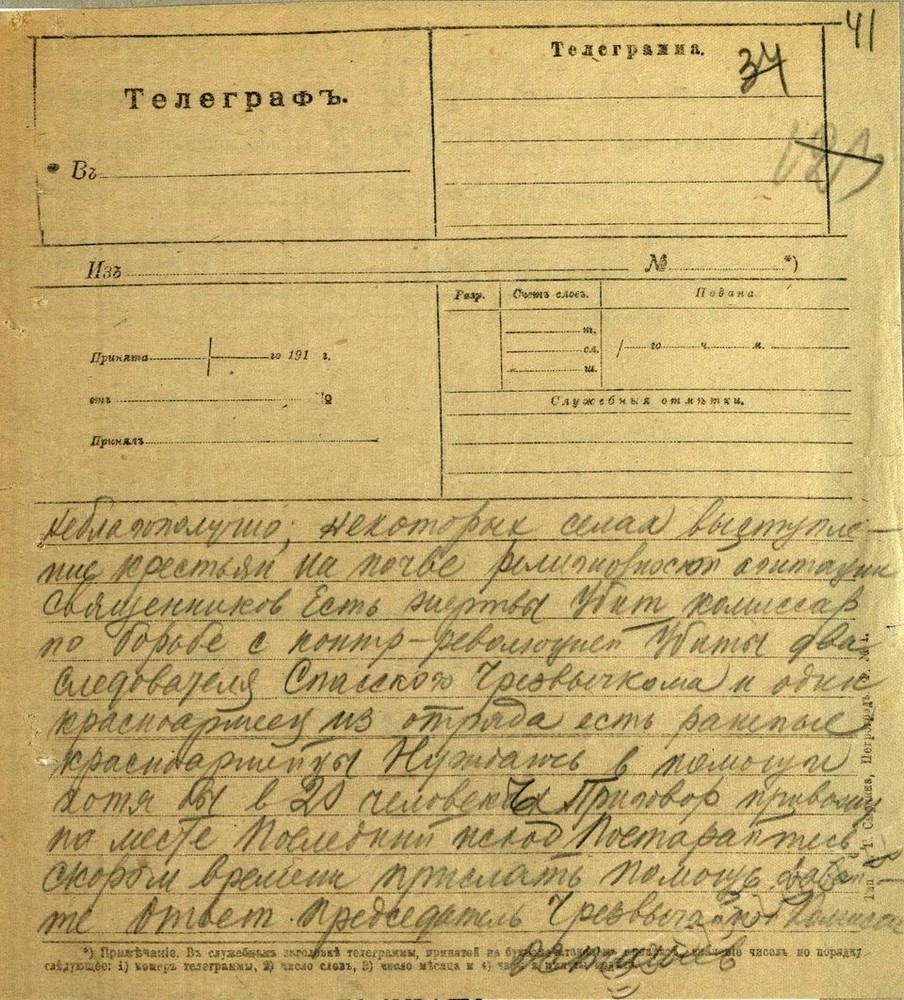 41
Телеграфъ.
Телеграмма.
34
Въ
Изъ № *)
Разр. Счетъ словъ. Подана.
Принята го 191 г.
т.
сл.
ш.
го ч. м.
отъ №
Служебныя отмѣтки.
Принялъ
Неблагополучно, некоторых селах выступле-
ние крестьян на почве религиозности агитации
священников Есть жертвы Убит комиссар
по борьбе с контр-революцией Убиты два
следователя Спасского Чрезвычкома и один
красноармеец из отряда есть раненые
красноармейцы Нуждаюсь в помощи
хотя бы в 20 человеках Приговор привожу
на месте Последний исход Постарайтесь
скором времени прислать помощь давай-
те ответ Председатель Чрезвычайной Комиссии
*) Примѣчаніе. Въ служебныхъ заголовкѣ телеграммы, принятой на чиселъ по порядку
слѣдующее: 1) номеръ телеграммы, 2) число словъ, 3) число мѣсяца и 4)